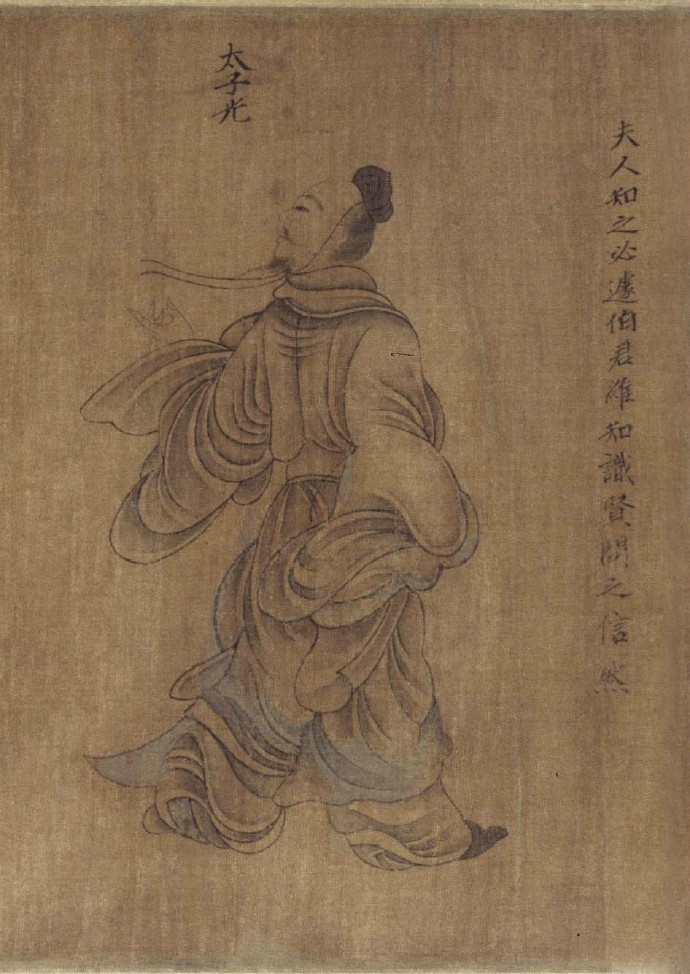 夫人知之必遽伯君維知識賢問之信然
太子光